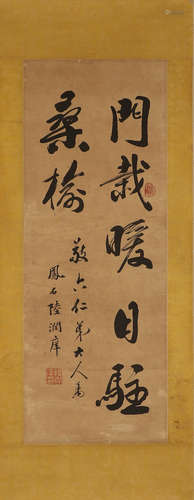 門栽暖日駐
桑榆
敬六仁弟大人屬
鳳石陸潤庠